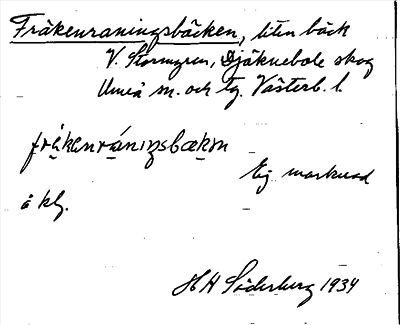 Fräkenraningsbäcken, liten bäck
V. Stormyren, Djäknebole skog
Umeå sn. och tg. Västerb. l.
frä̀kanrániŋsbækɐn
Ej marknad
å kfg.
H H Söderberg 1934